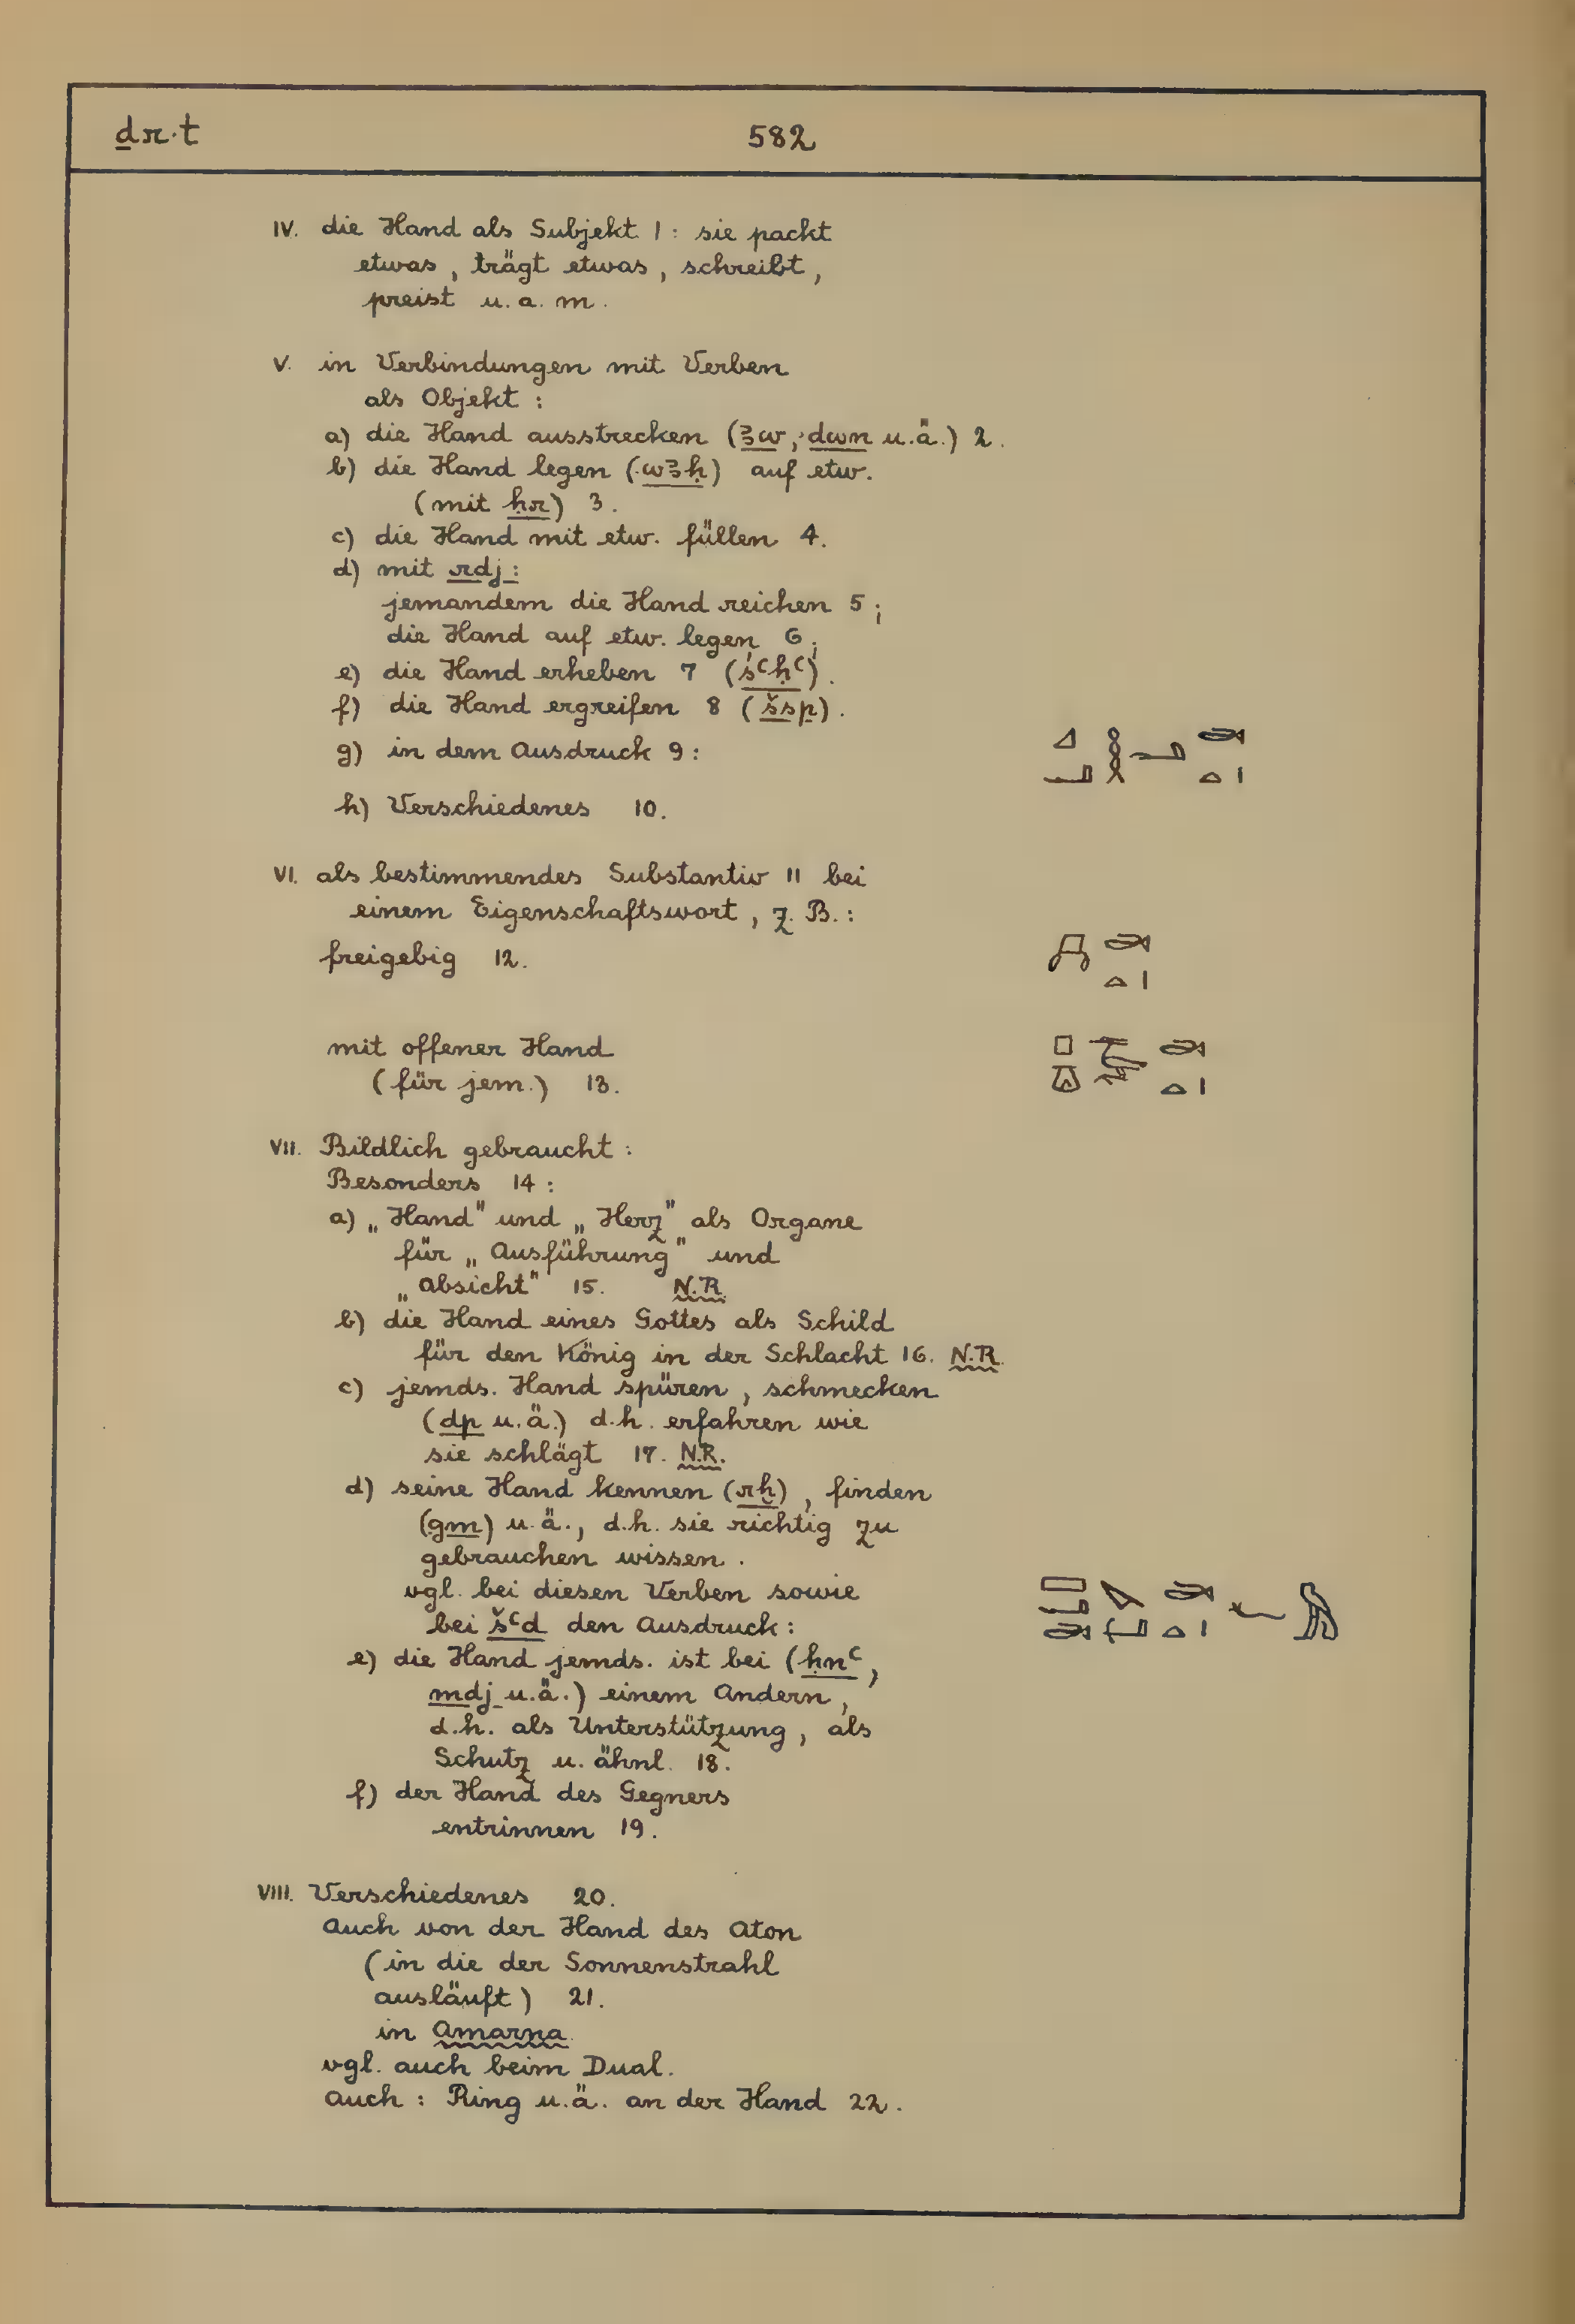 ḏr·t 582
IV. die Hand als Subjekt 1 : sie packt
etwas, trägt etwas, schreibt,
preist u. a. m.
V. in Verbindungen mit Verben
als Objekt :
a) die Hand ausstrecken (ꜣw, dwn u.ä.) 2.
b) die Hand legen (wꜣḥ) auf etw.
(mit ḥr) 3.
c) die Hand mit etw. füllen 4.
d) mit rdj :
jemandem die Hand reichen 5 ;
die Hand auf etw. legen 6 ;
e) die Hand erheben 7 (śꜥḥꜥ).
f) die Hand ergreifen 8 (šsp).
g) in dem Ausdruck 9 :
h) Verschiedenes 10.
VI. als bestimmendes Substantiv 11 bei
einem Eigenschaftswort, z. B. :
freigebig 12.
mit offener Hand
(für jem.) 13.
VII. Bildlich gebraucht :
Besonders 14 :
a) „Hand" und „Herz" als Organe
für „Ausführung" und
„Absicht" 15. N.R.
b) die Hand eines Gottes als Schild
für den König in der Schlacht 16. N.R.
c) jemds. Hand spüren, schmecken
(dp u.ä.) d.h. erfahren wie
sie schlägt 17. N.R.
d) seine Hand kennen (rḫ), finden
(gm) u.ä., d.h. sie richtig zu
gebrauchen wissen.
vgl. bei diesen Verben sowie
bei šꜥd den Ausdruck :
e) die Hand jemds. ist bei (ḥnꜥ,
mdj u.ä.) einem Andern,
d.h. als Unterstützung, als
Schutz u. ähnl. 18.
f) der Hand des Gegners
entrinnen 19.
VIII. Verschiedenes 20.
Auch von der Hand des Aton
(in die der Sonnenstrahl
ausläuft) 21.
in Amarna.
vgl. auch beim Dual.
Auch : Ring u.ä. an der Hand 22.